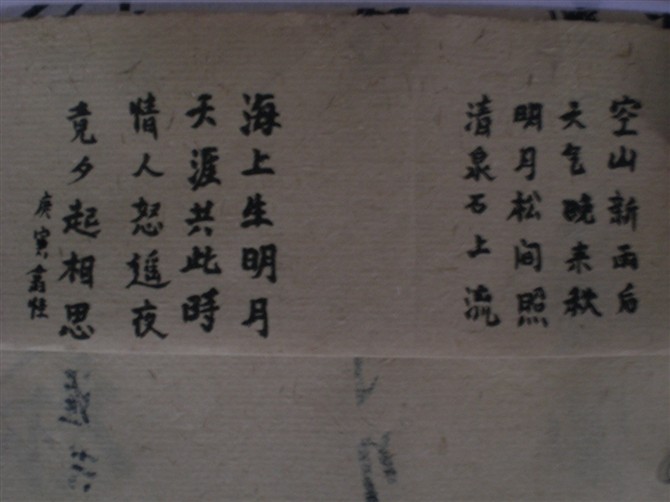 空山新雨后
天气晚来秋
明月松间照
清泉石上流
海上生明月
天涯共此時
情人怒遥夜
竟夕起相思
庚寅